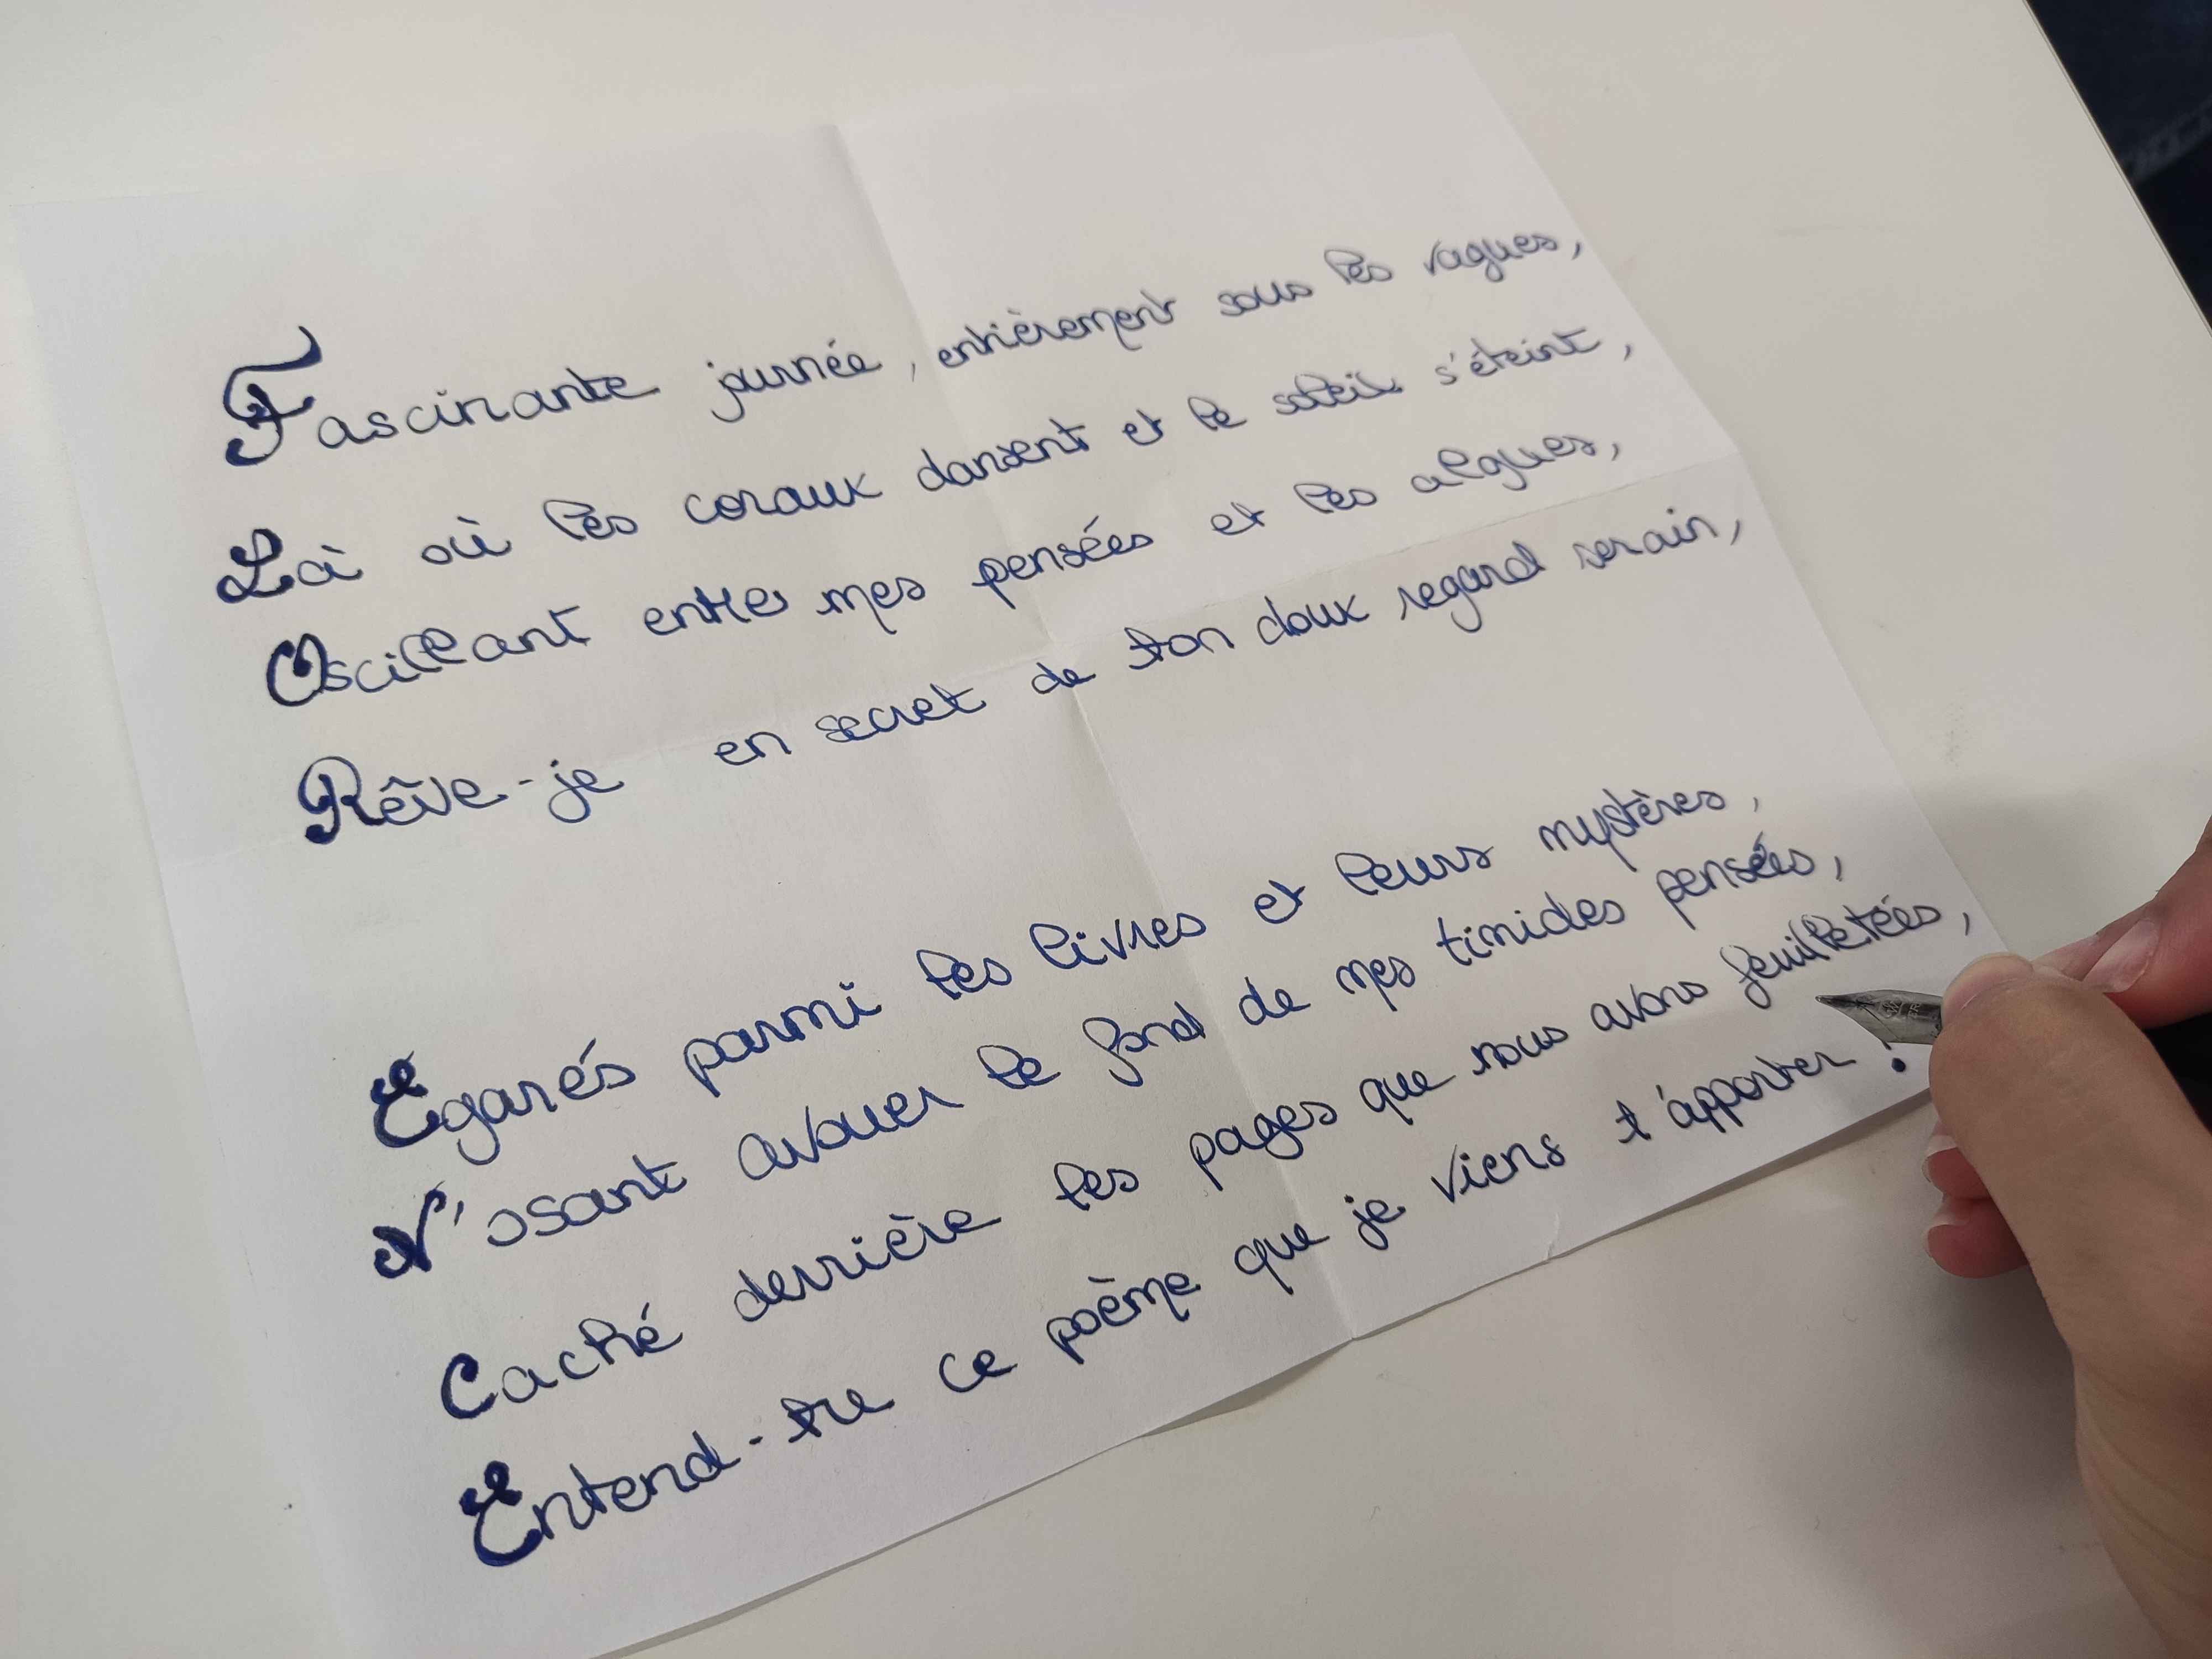 Fascinante journée, entièrement sous les vagues,
Là où les coraux dansent et le soleil s'éteint,
Oscillant entre mes pensées et les algues,
Rêve-je en secret de ton doux regard serain,
Égarés parmi les livres et leurs mystères,
N'osant avouer le fond de mes timides pensées,
Caché derrière les pages que nous avons feuilletées,
Entend-tu ce poème que je viens t'apporter !